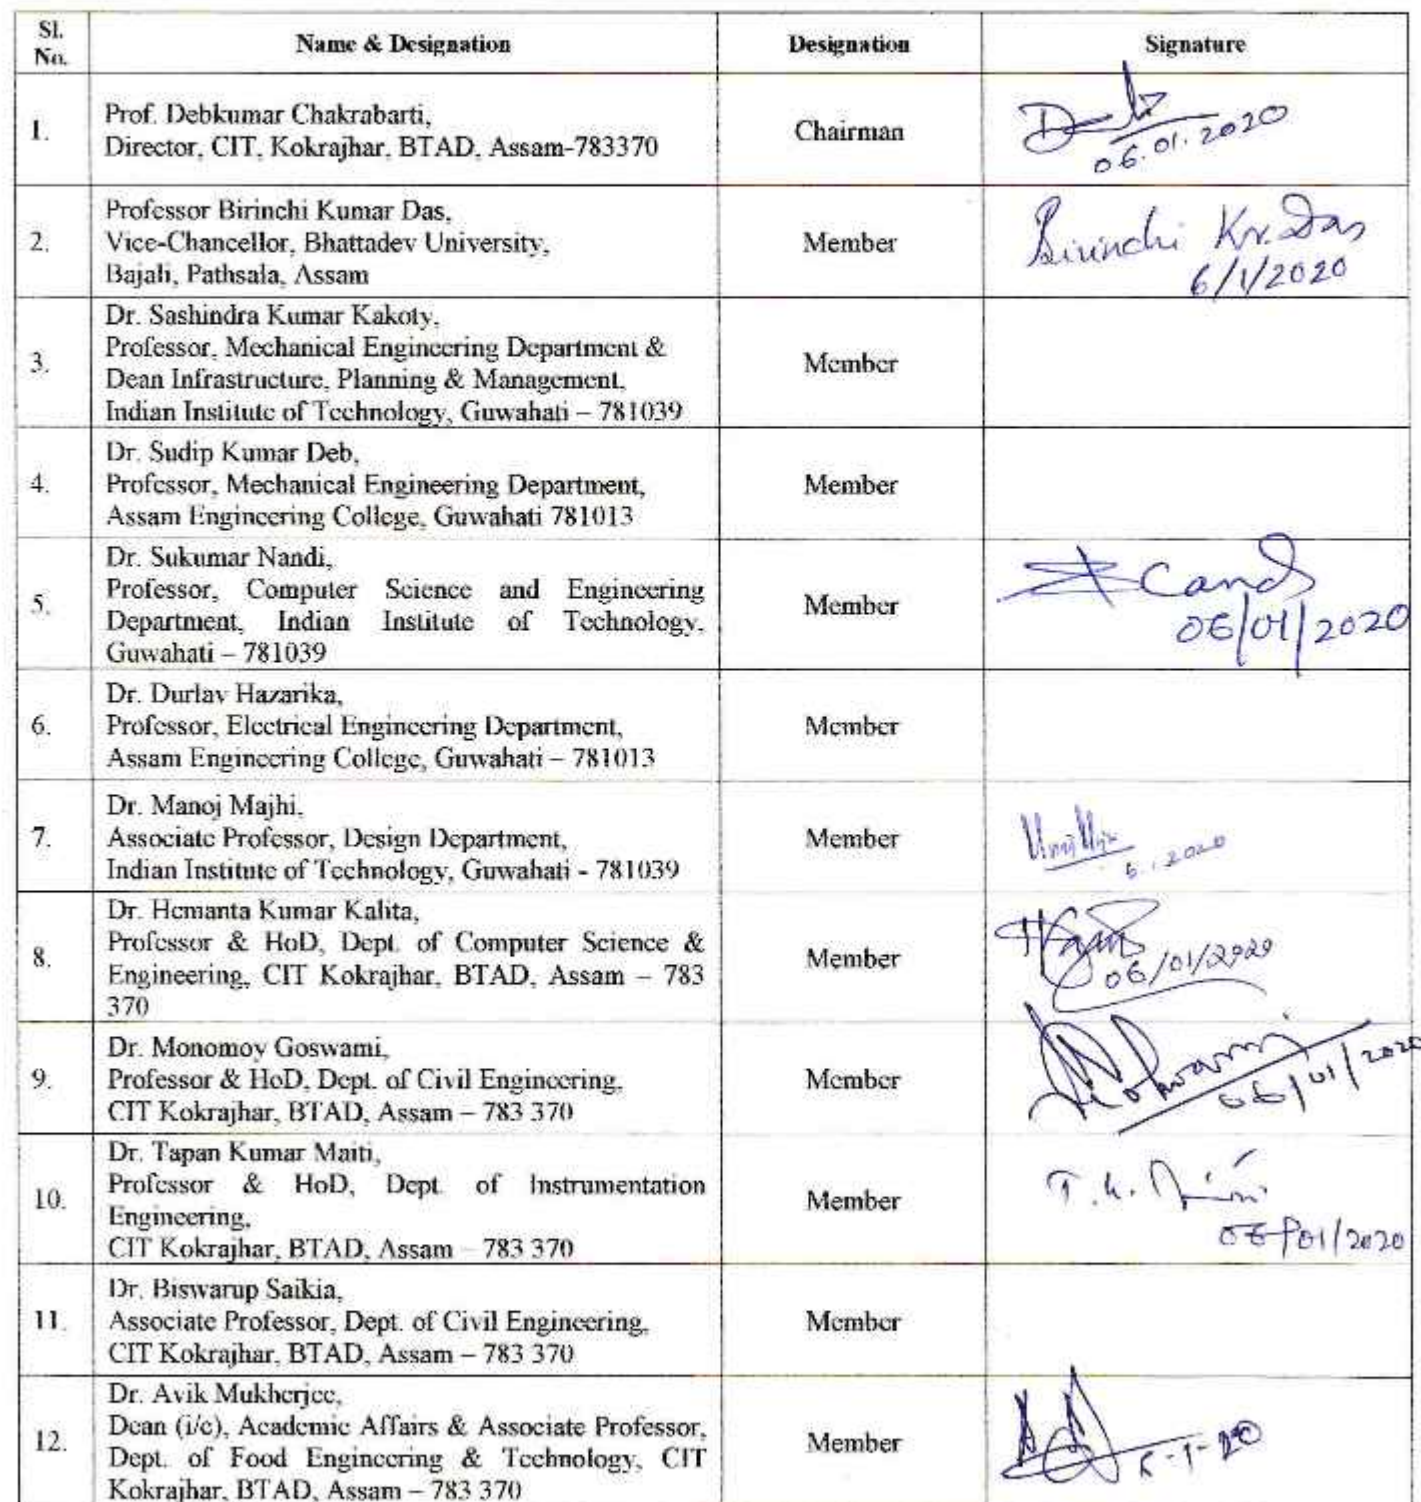 Sl. No. Name & Designation Designation Signature
1. Prof. Debkumar Chakrabarti,
Director, CIT, Kokrajhar, BTAD, Assam-783370
Chairman
06.01.2020
2. Professor Birinchi Kumar Das,
Vice-Chancellor, Bhattadev University,
Bajali, Pathsala, Assam
Member
Birinchi Kr. Das
6/1/2020
3. Dr. Sashindra Kumar Kakoty,
Professor, Mechanical Engineering Department &
Dean Infrastructure, Planning & Management,
Indian Institute of Technology, Guwahati – 781039
Member
4. Dr. Sudip Kumar Deb,
Professor, Mechanical Engineering Department,
Assam Engineering College, Guwahati 781013
Member
5. Dr. Sukumar Nandi,
Professor, Computer Science and Engineering
Department, Indian Institute of Technology,
Guwahati – 781039
Member
06/01/2020
6. Dr. Durlav Hazarika,
Professor, Electrical Engineering Department,
Assam Engineering College, Guwahati – 781013
Member
7. Dr. Manoj Majhi,
Associate Professor, Design Department,
Indian Institute of Technology, Guwahati - 781039
Member
8. Dr. Hemanta Kumar Kalita,
Professor & HoD, Dept. of Computer Science &
Engineering, CIT Kokrajhar, BTAD, Assam – 783
370
Member
06/01/2020
9. Dr. Monomoy Goswami,
Professor & HoD, Dept. of Civil Engineering,
CIT Kokrajhar, BTAD, Assam – 783 370
Member
06/01/2020
10. Dr. Tapan Kumar Maiti,
Professor & HoD, Dept. of Instrumentation
Engineering,
CIT Kokrajhar, BTAD, Assam – 783 370
Member
06/01/2020
11. Dr. Biswarup Saikia,
Associate Professor, Dept. of Civil Engineering,
CIT Kokrajhar, BTAD, Assam – 783 370
Member
12. Dr. Avik Mukherjee,
Dean (i/c), Academic Affairs & Associate Professor,
Dept. of Food Engineering & Technology, CIT
Kokrajhar, BTAD, Assam – 783 370
Member